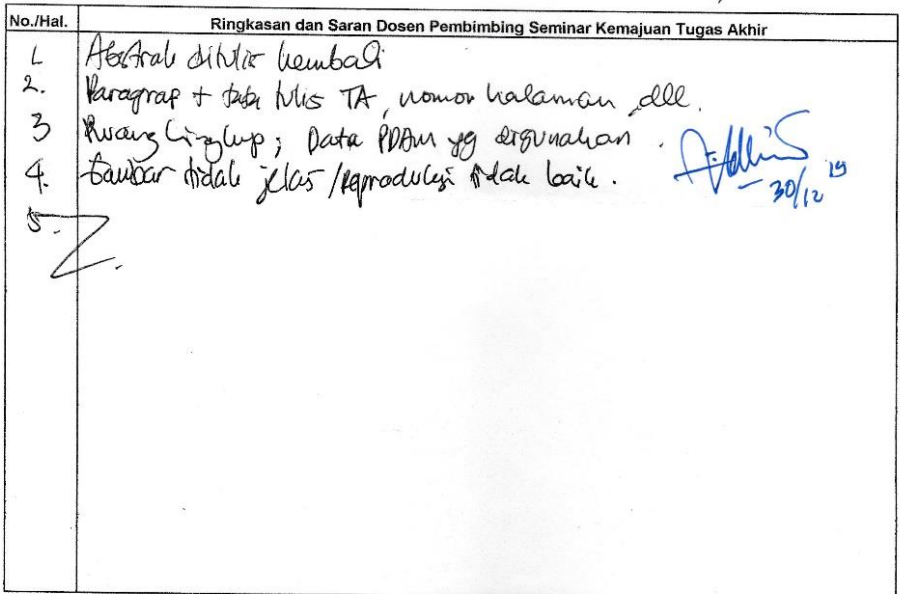 No./Hal. Ringkasan dan Saran Dosen Pembimbing Seminar Kemajuan Tugas Akhir
1 Abstrak ditulis kembali
2. Paragraf + tata tulis TA, nomor halaman, dll.
3 Ruang lingkup; Data PDAM yg digunakan.
4. Gambar tidak jelas / reproduksi tidak baik.
30/12 19
5.